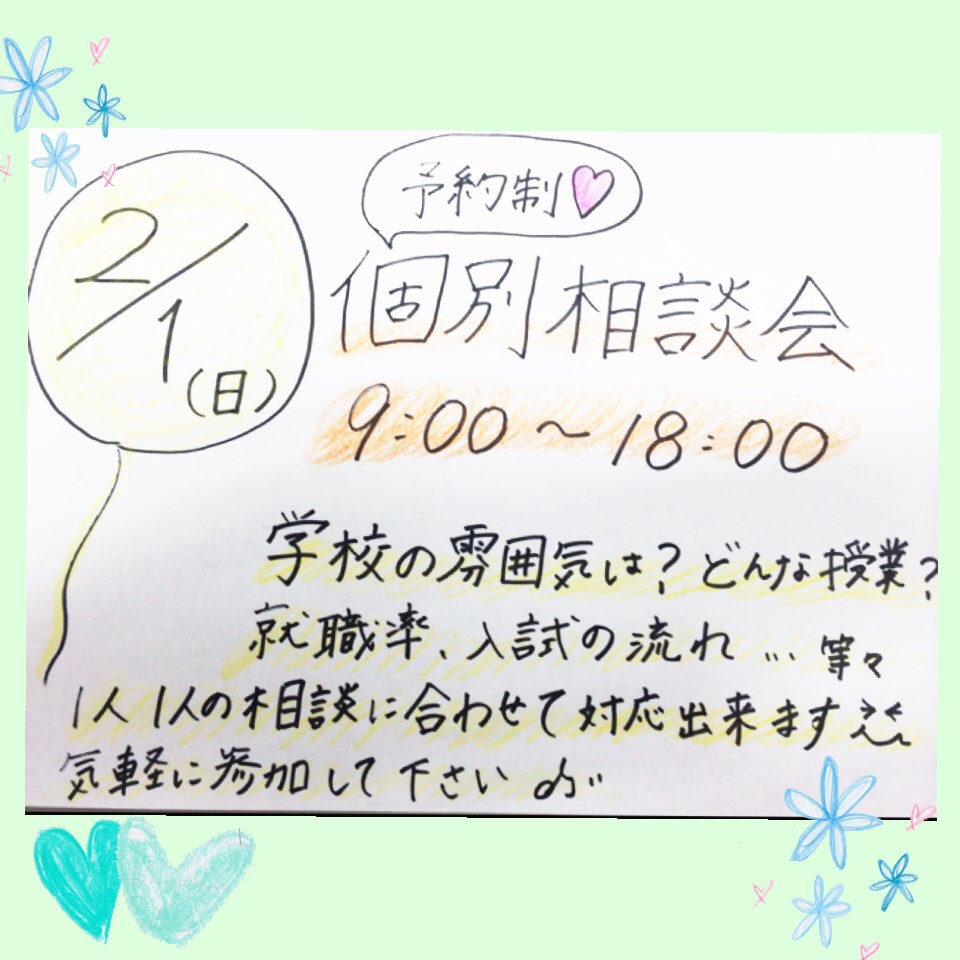 2/1(日)
予約制♡
個別相談会
9:00〜18:00
学校の雰囲気は?どんな授業?
就職率、入試の流れ…等々
1人1人の相談に合わせて対応出来ます
気軽に参加して下さい♪